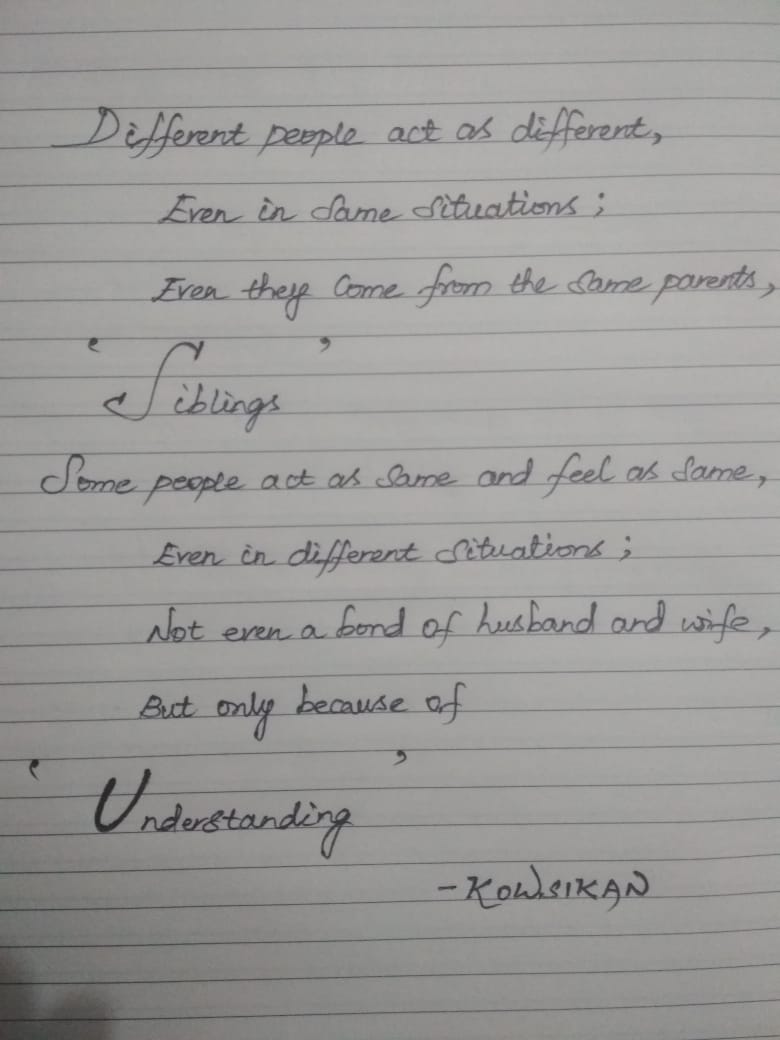 Different people act as different,
Even in same situations ;
Even they come from the same parents,
‘ Siblings ’
Some people act as same and feel as same,
Even in different situations ;
Not even a bond of husband and wife,
But only because of
‘ Understanding ’
- KOWSIKAN